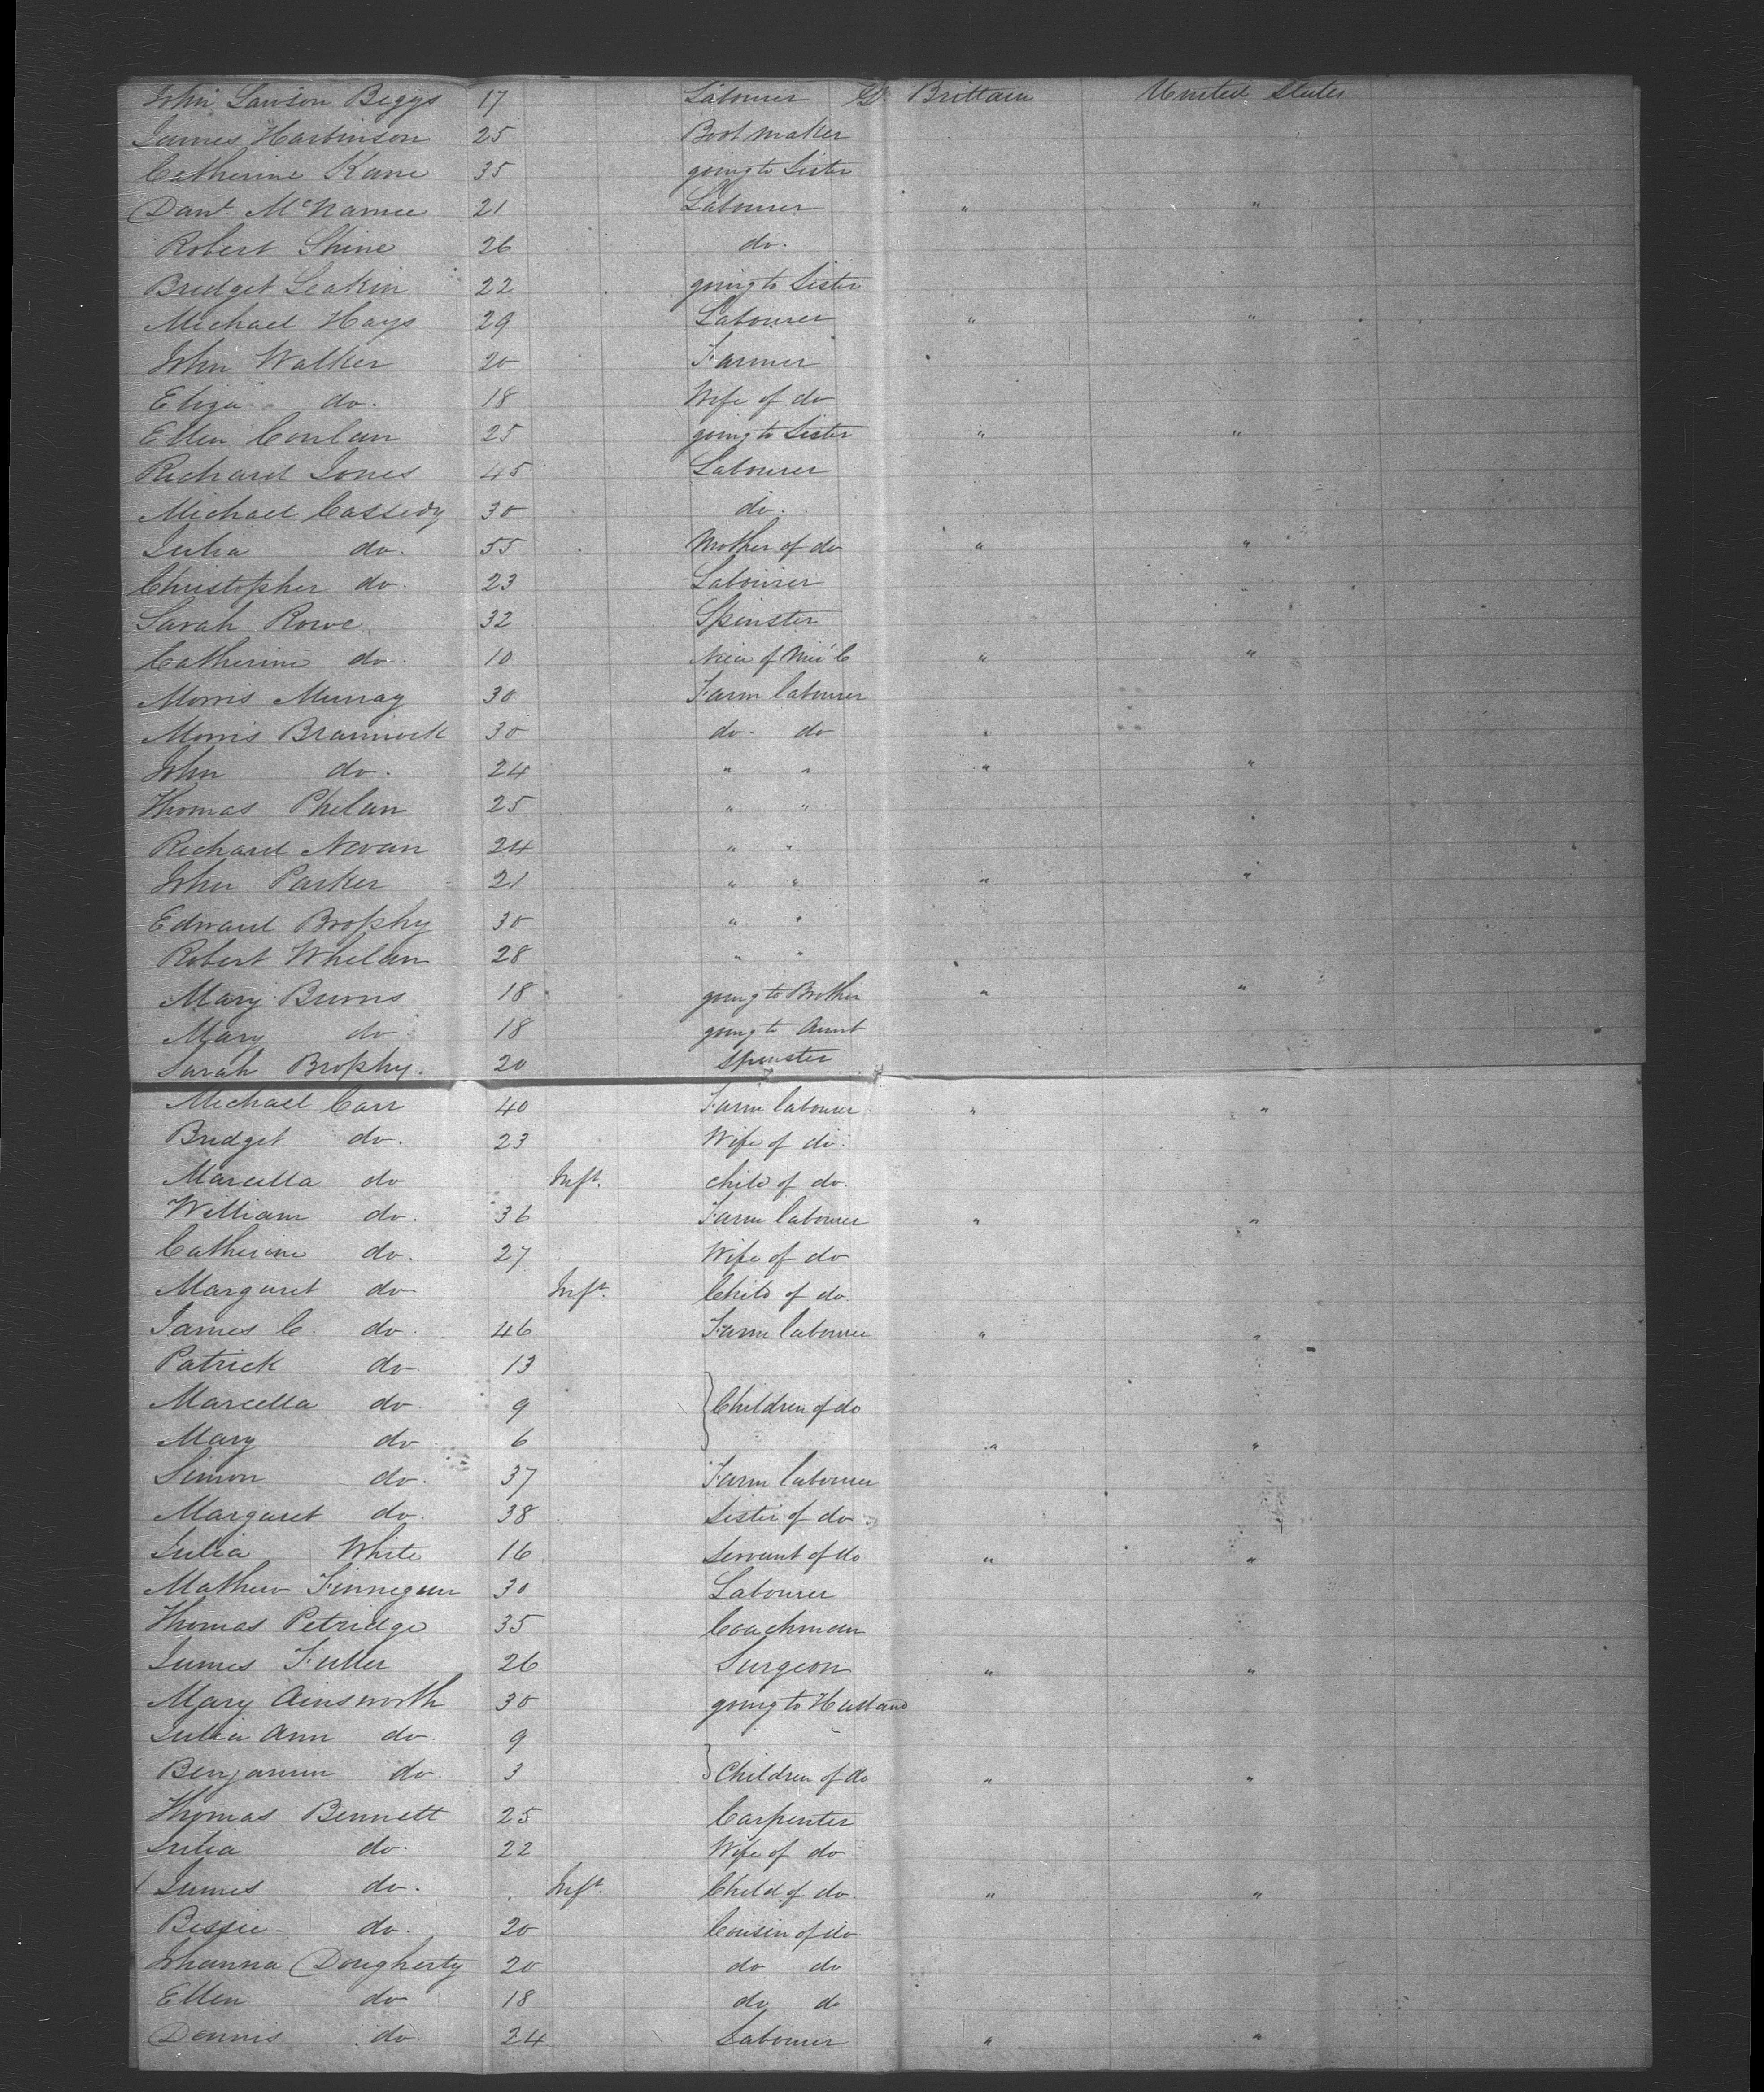 John Lawson Beggs 17 Labourer Gt. Brittain United States
James Harbinson 25 Boot maker
Catherine Kane 35 going to Sister
Danl. McNamee 21 Labourer " "
Robert Shine 26 do.
Bridget Leakin 22 going to Sister
Michael Hays 29 Labourer " "
John Walker 20 Farmer
Eliza do. 18 Wife of do
Ellen Conlan 25 going to Sister " "
Richard Jones 45 Labourer
Michael Cassidy 30 do.
Julia do. 55 Mother of do " "
Christopher do. 23 Labourer
Sarah Rowe 32 Spinster
Catherine do. 10 of " "
Morris Murray 30 Farm labourer
Morris Brannock 30 do. do
John do. 24 " " " "
Thomas Phelan 25 " "
Richard Nevan 24 " "
John Parker 21 " " " "
Edward Brophy 30 " "
Robert Whelan 28 " "
Mary Burns 18 going to Brother " "
Mary do 18 going to Aunt
Sarah Brophy. 20 Spinster
Michael Carr 40 Farm labourer " "
Bridget do. 23 Wife of do.
Marcella do Inft. child of do.
William do. 36 Farm labourer " "
Catherine do. 27 Wife of do
Margaret do Inft. Child of do.
James C. do. 46 Farm labourer " "
Patrick do. 13
Marcella do. 9 } Children of do
Mary do 6 " "
Simon do. 37 Farm labourer
Margaret do. 38 Sister of do
Julia White 16 Servant of do " "
Mathew Finnegan 30 Labourer
Thomas Petridge 35 Coachman
James Fuller 26 Surgeon " "
Mary Ainsworth 30 going to Husband
Julia Ann do. 9
Benjamin do. 3 } Children of do " "
Thomas Bennett 25 Carpenter
Julia do. 22 Wife of do
James do. Inft. Child of do. " "
Bessie do. 20 Cousin of do
Johanna Dougherty 20 do do
Ellen do 18 do do
Dennis do. 24 Labourer " "